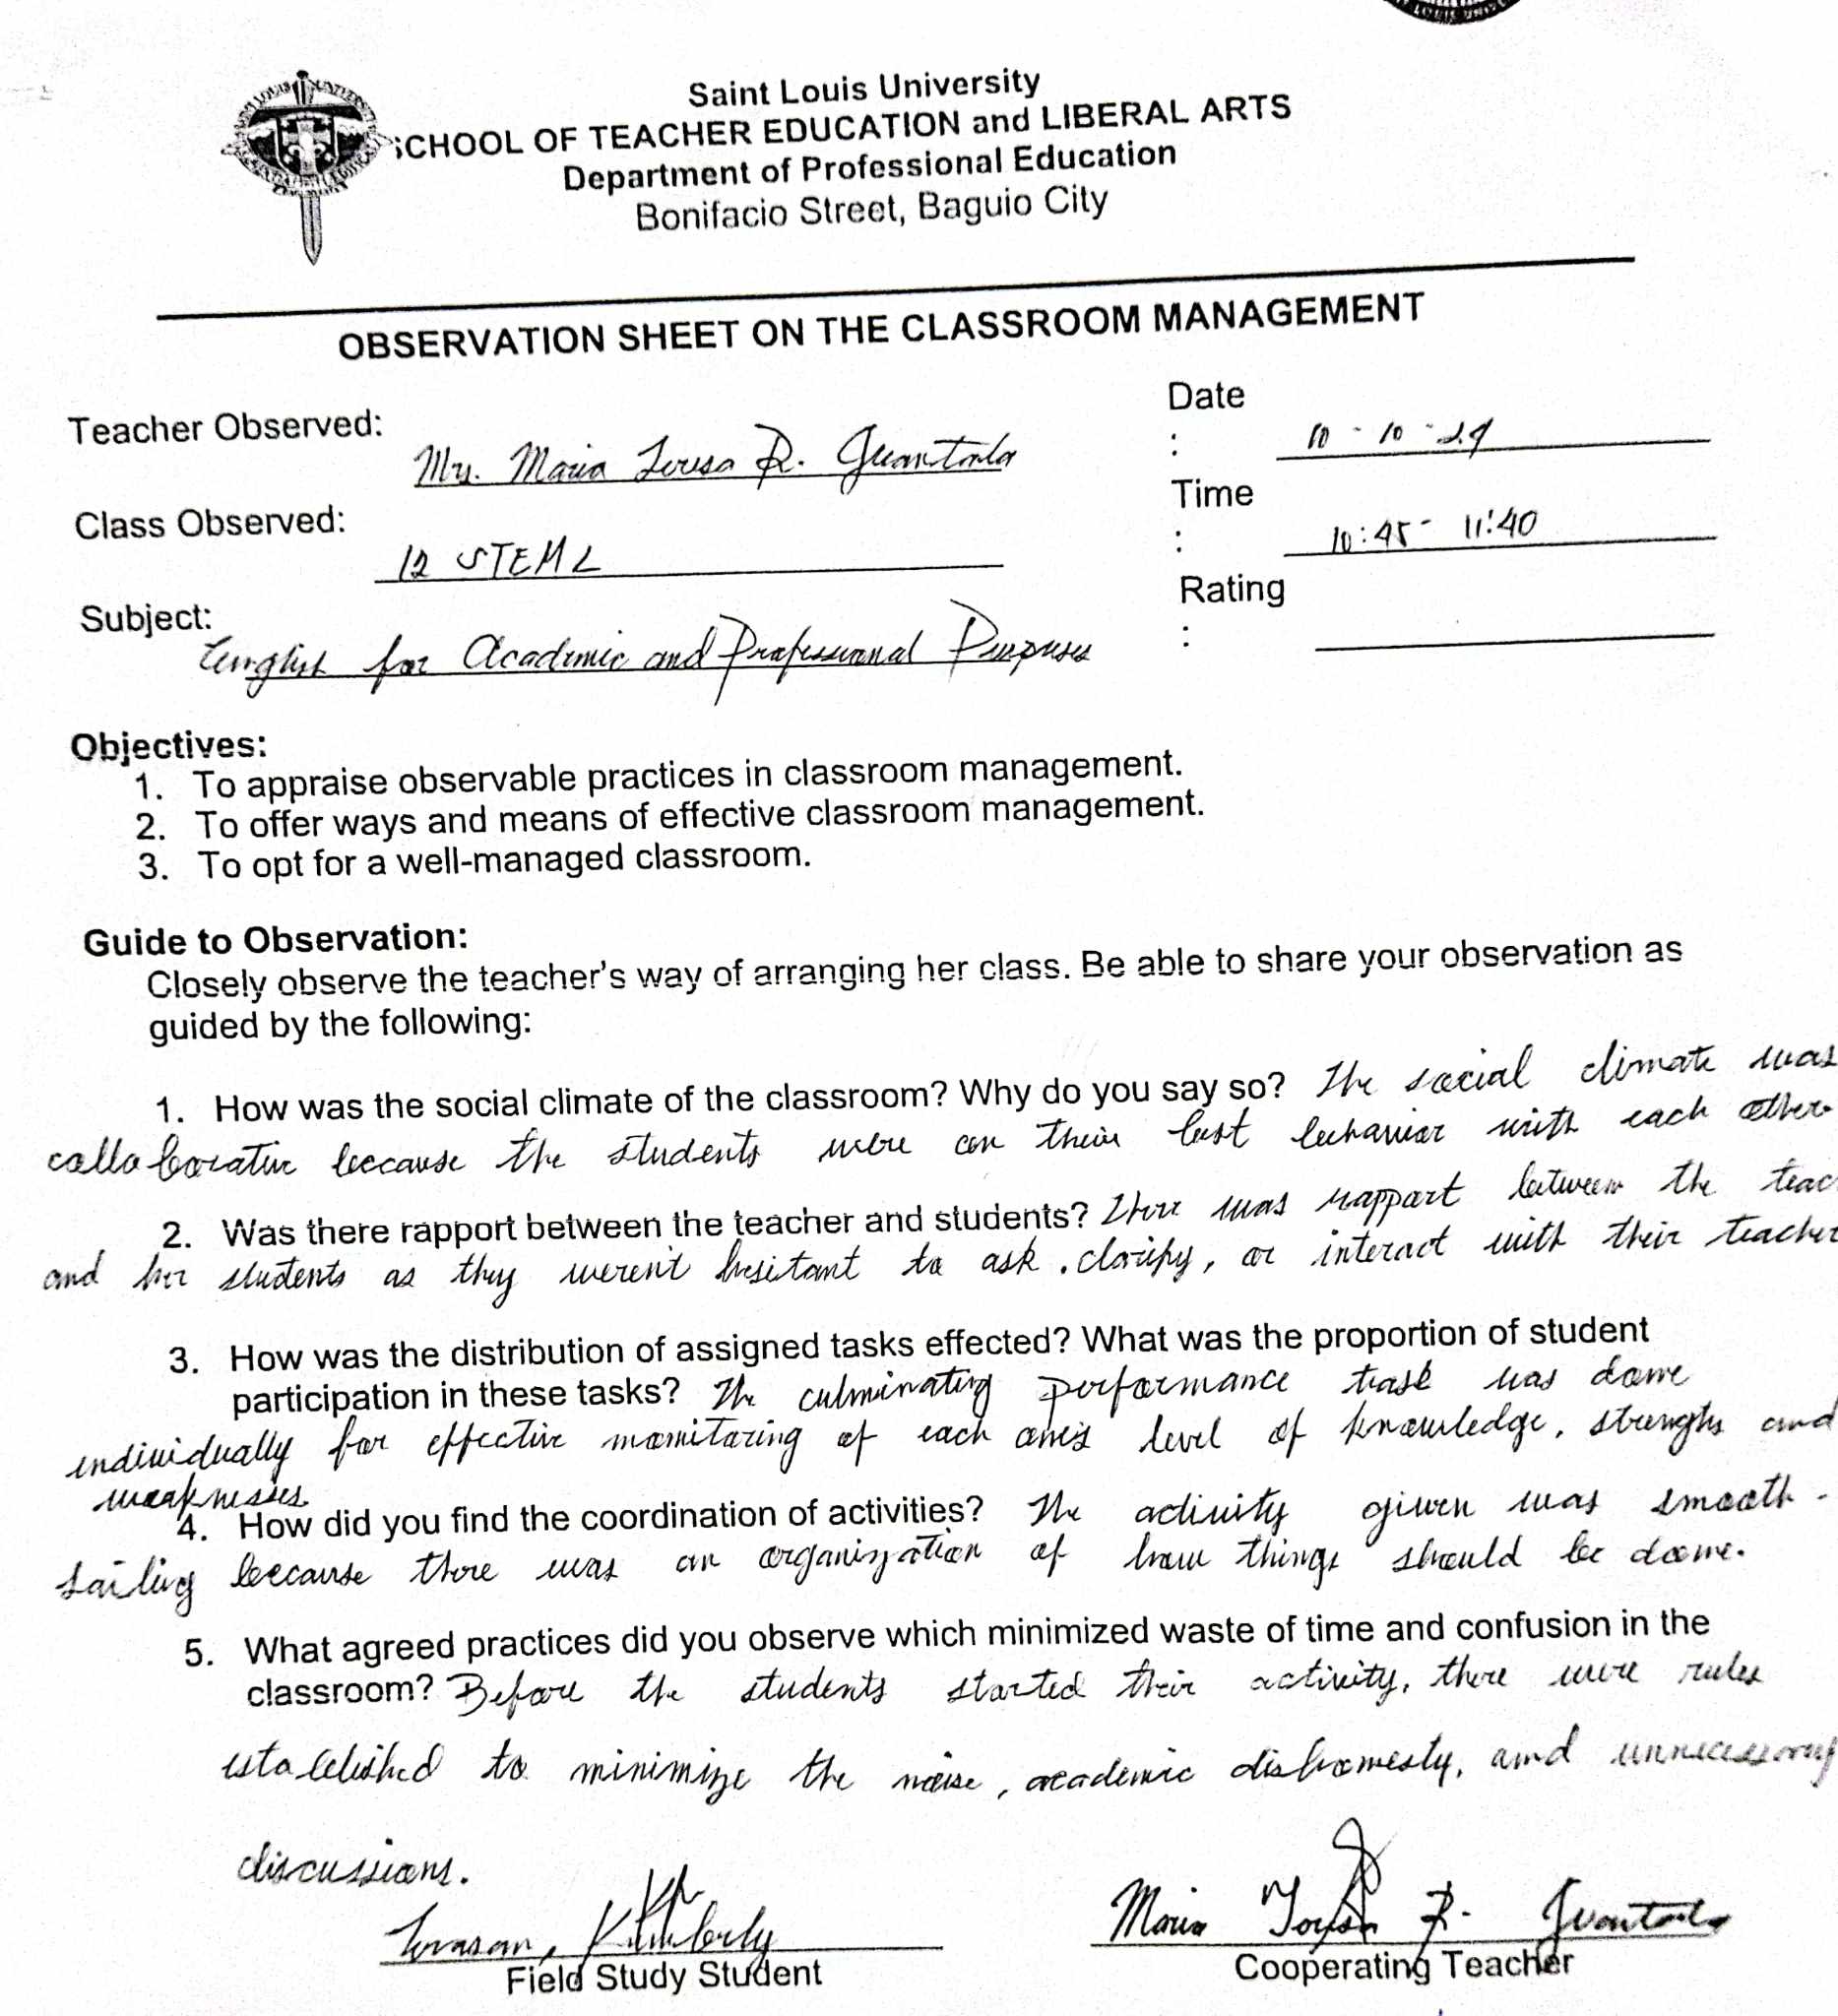 Saint Louis University
SCHOOL OF TEACHER EDUCATION and LIBERAL ARTS
Department of Professional Education
Bonifacio Street, Baguio City
OBSERVATION SHEET ON THE CLASSROOM MANAGEMENT
Teacher Observed: Maria Teresa R.
Date : 10-10-24
Class Observed: 12 STEM
Time : 10:45 - 11:40
Subject: English for Academic and Professional Purposes
Rating :
Objectives:
1. To appraise observable practices in classroom management.
2. To offer ways and means of effective classroom management.
3. To opt for a well-managed classroom.
Guide to Observation:
Closely observe the teacher's way of arranging her class. Be able to share your observation as
guided by the following:
1. How was the social climate of the classroom? Why do you say so? The social climate was
collaborative because the students were on their best behavior with each other.
2. Was there rapport between the teacher and students? There was rapport between the teac
and her students as they weren't hesitant to ask, clarify, or interact with their teacher
3. How was the distribution of assigned tasks effected? What was the proportion of student
participation in these tasks? The culminating performance task was done
individually for effective monitoring of each one's level of knowledge, strengths and
weaknesses.
4. How did you find the coordination of activities? The activity given was smooth-
sailing because there was an organization of how things should be done.
5. What agreed practices did you observe which minimized waste of time and confusion in the
classroom? Before the students started their activity, there were rules
established to minimize the noise, academic dishonesty, and unnecessary
discussions.
Kimberly
Maria R.
Field Study Student
Cooperating Teacher